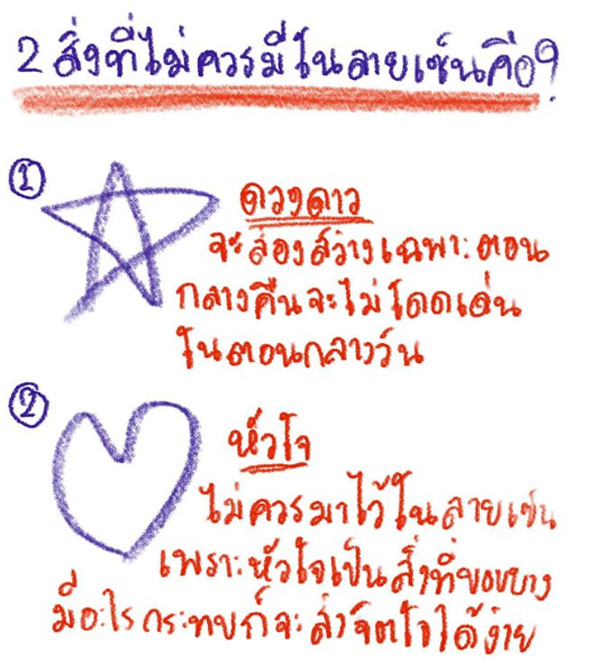 2 สิ่งที่ไม่ควรมีในลายเซ็นคือ?
1
ดวงดาว
จะส่องสว่างเฉพาะตอน
กลางคืนจะไม่โดดเด่น
ในตอนกลางวัน
2
หัวใจ
ไม่ควรมาไว้ในลายเซ็น
เพราะหัวใจเป็นสิ่งที่บอบบาง
มีอะไรกระทบก็จะ จิตใจได้ง่าย